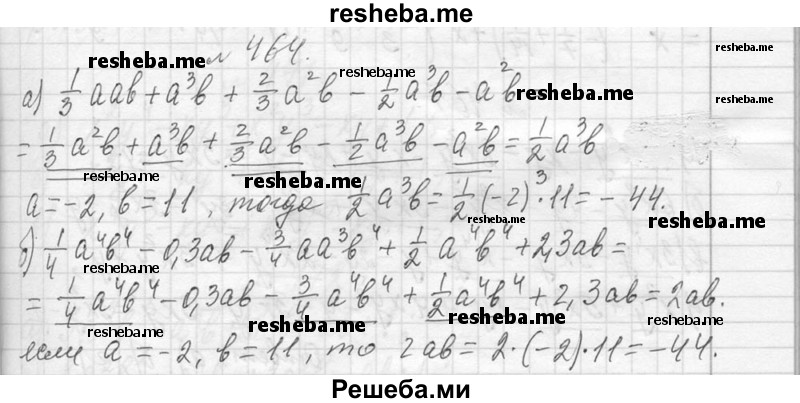 resheba.me
№ 464.
resheba.me
resheba.me
resheba.me
а) 1/3 aab + a³b + 2/3 a²b − 1/2 a³b − a²b =
resheba.me
resheba.me
= 1/3 a²b + a³b + 2/3 a²b − 1/2 a³b − a²b = 1/2 a³b
resheba.me
resheba.me
a = −2, b = 11, тогда 1/2 a³b = 1/2 (−2)³·11 = −44.
resheba.me
resheba.me
б) 1/4 a⁴b⁴ − 0,3ab − 3/4 aa³b⁴ + 1/2 a⁴b⁴ + 2,3ab =
resheba.me
resheba.me
= 1/4 a⁴b⁴ − 0,3ab − 3/4 a⁴b⁴ + 1/2 a⁴b⁴ + 2,3ab = 2ab.
resheba.me
resheba.me
resheba.me
resheba.me
если a = −2, b = 11, то 2ab = 2·(−2)·11 = −44.
Решеба.ми